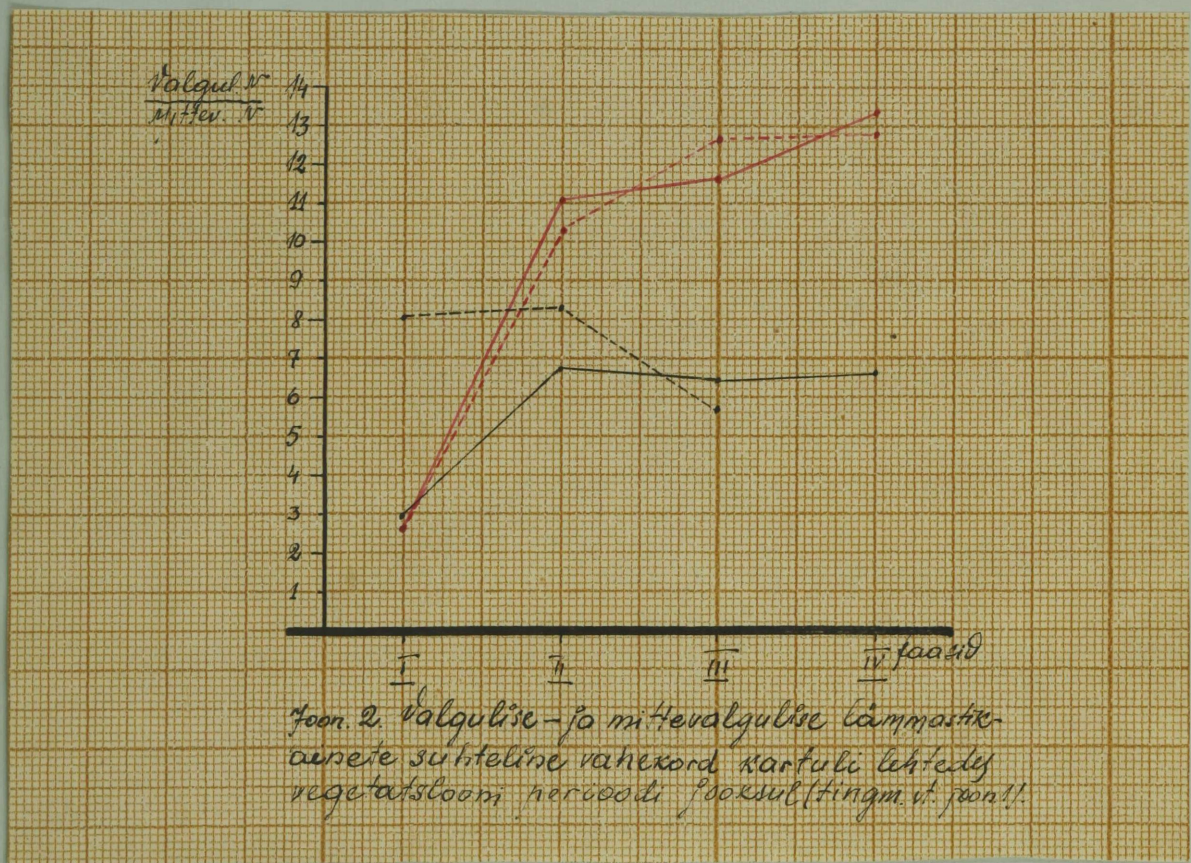 Valgul. N
Mittev. N
14
13
12
11
10
9
8
7
6
5
4
3
2
1
I II III IV faasid
Joon. 2. Valgulise- ja mittevalgulise lämmastik-
ainete suhteline vahekord kartuli lehtedes
vegetatsiooni perioodi jooksul (tingm. vt. joon 1).